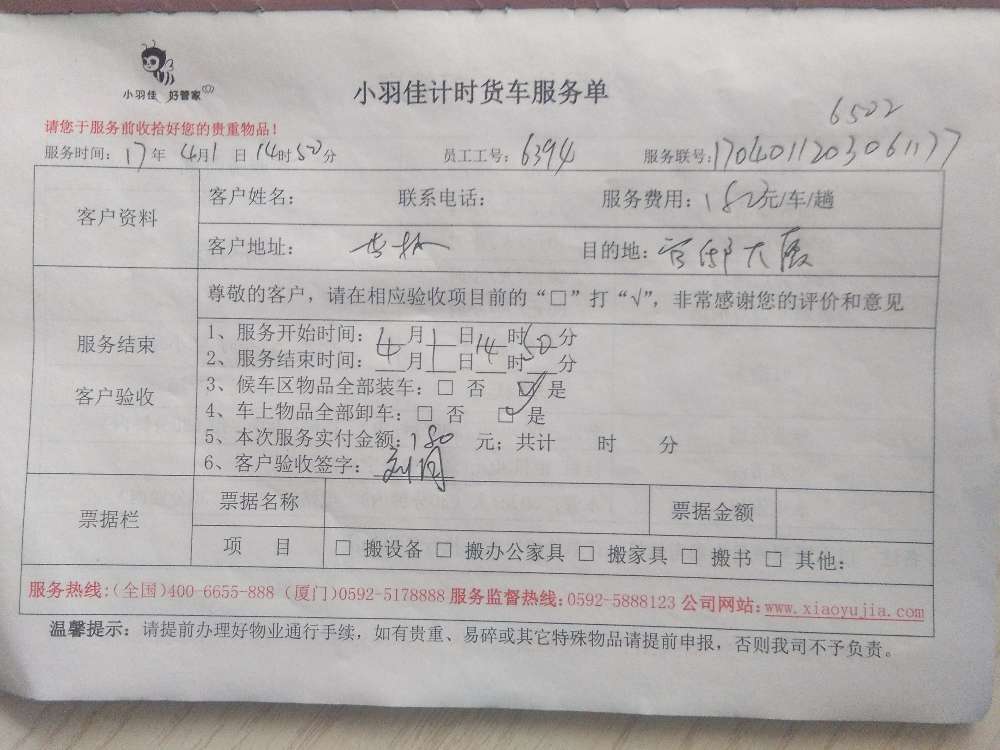 小羽佳 好管家
小羽佳计时货车服务单
6502
请您于服务前收拾好您的贵重物品！
服务时间：17年 4月1日14时50分 员工工号：6394 服务联号：1704011203061177
客户资料
客户姓名： 联系电话： 服务费用：180元/车/趟
客户地址： 目的地：官邸大厦
服务结束
客户验收
尊敬的客户，请在相应验收项目前的“□”打“√”，非常感谢您的评价和意见
1、服务开始时间：4月1日14时50分
2、服务结束时间：4月 日 时 分
3、候车区物品全部装车：□ 否 ☑ 是
4、车上物品全部卸车：□ 否 ☑ 是
5、本次服务实付金额：180 元；共计 时 分
6、客户验收签字：
票据栏
票据名称 票据金额
项 目 □ 搬设备 □ 搬办公家具 □ 搬家具 □ 搬书 □ 其他：
服务热线：（全国）400-6655-888（厦门）0592-5178888 服务监督热线：0592-5888123 公司网站：www.xiaoyujia.com
温馨提示：请提前办理好物业通行手续，如有贵重、易碎或其它特殊物品请提前申报，否则我司不予负责。